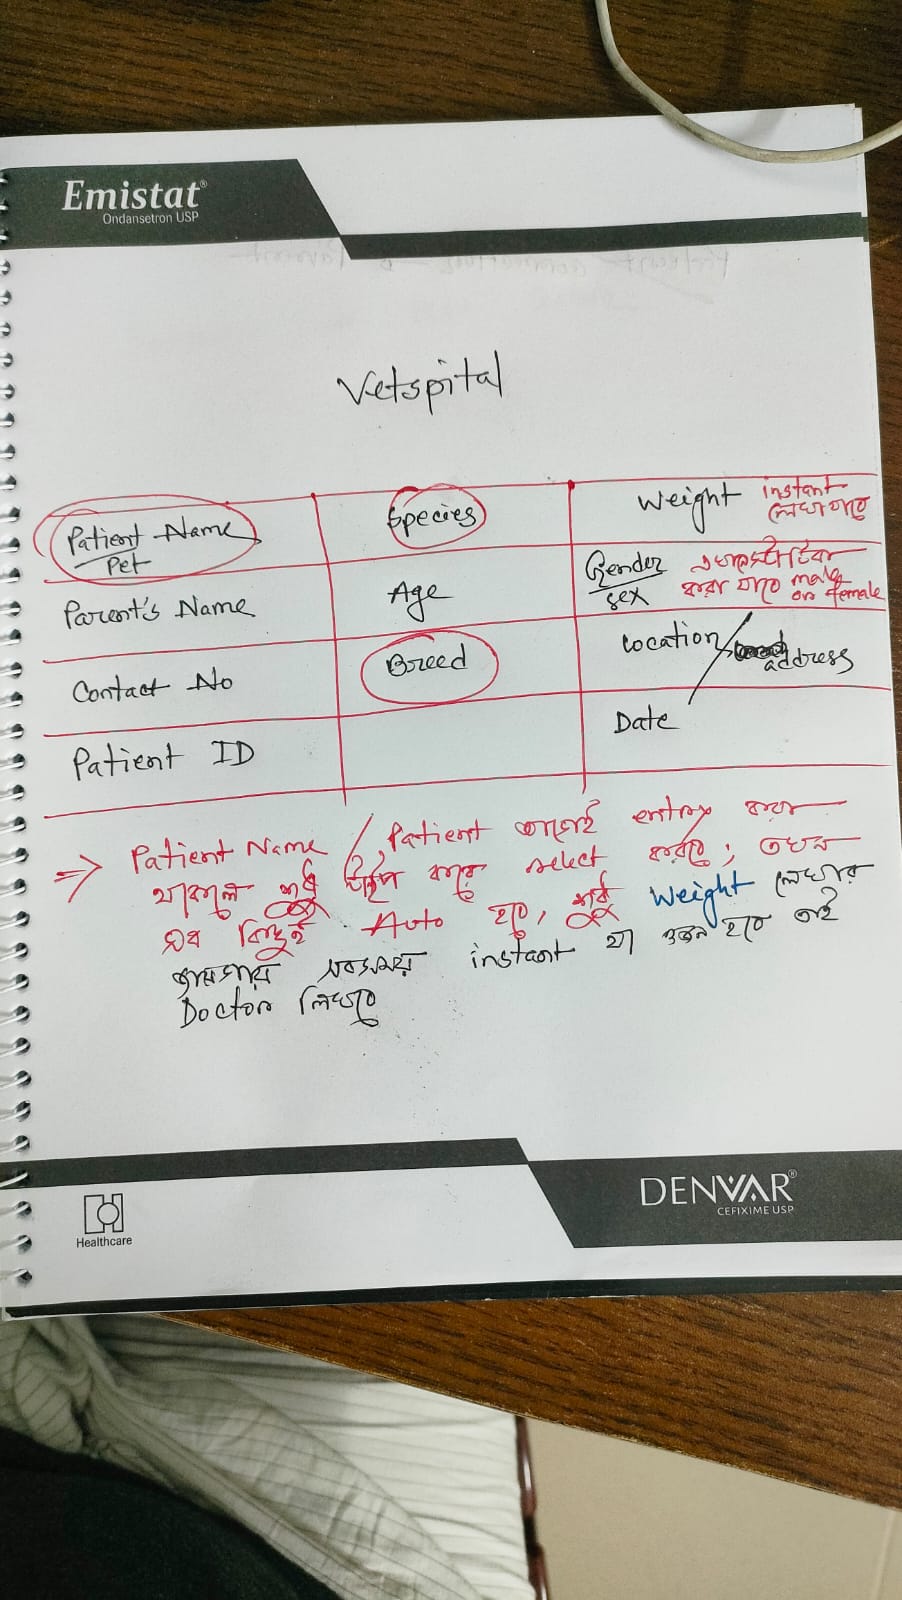 Emistat®
Ondansetron USP
Vetspital
Patient Name
Pet
Species
Weight instant লেখা যাবে
Parent's Name
Age
Gender
Sex
করা যাবে male or female
Contact No
Breed
Location / address
Patient ID
Date
⇒ Patient Name / Patient আগেই entry করা
থাকলে শুধু টাইপ করে select করবে, তখন
সব কিছুই Auto হবে, শুধু Weight লেখার
জায়গায় সবসময় instant যা ওজন হবে তাই
Doctor লিখবে
Healthcare
DENVAR®
CEFIXIME USP